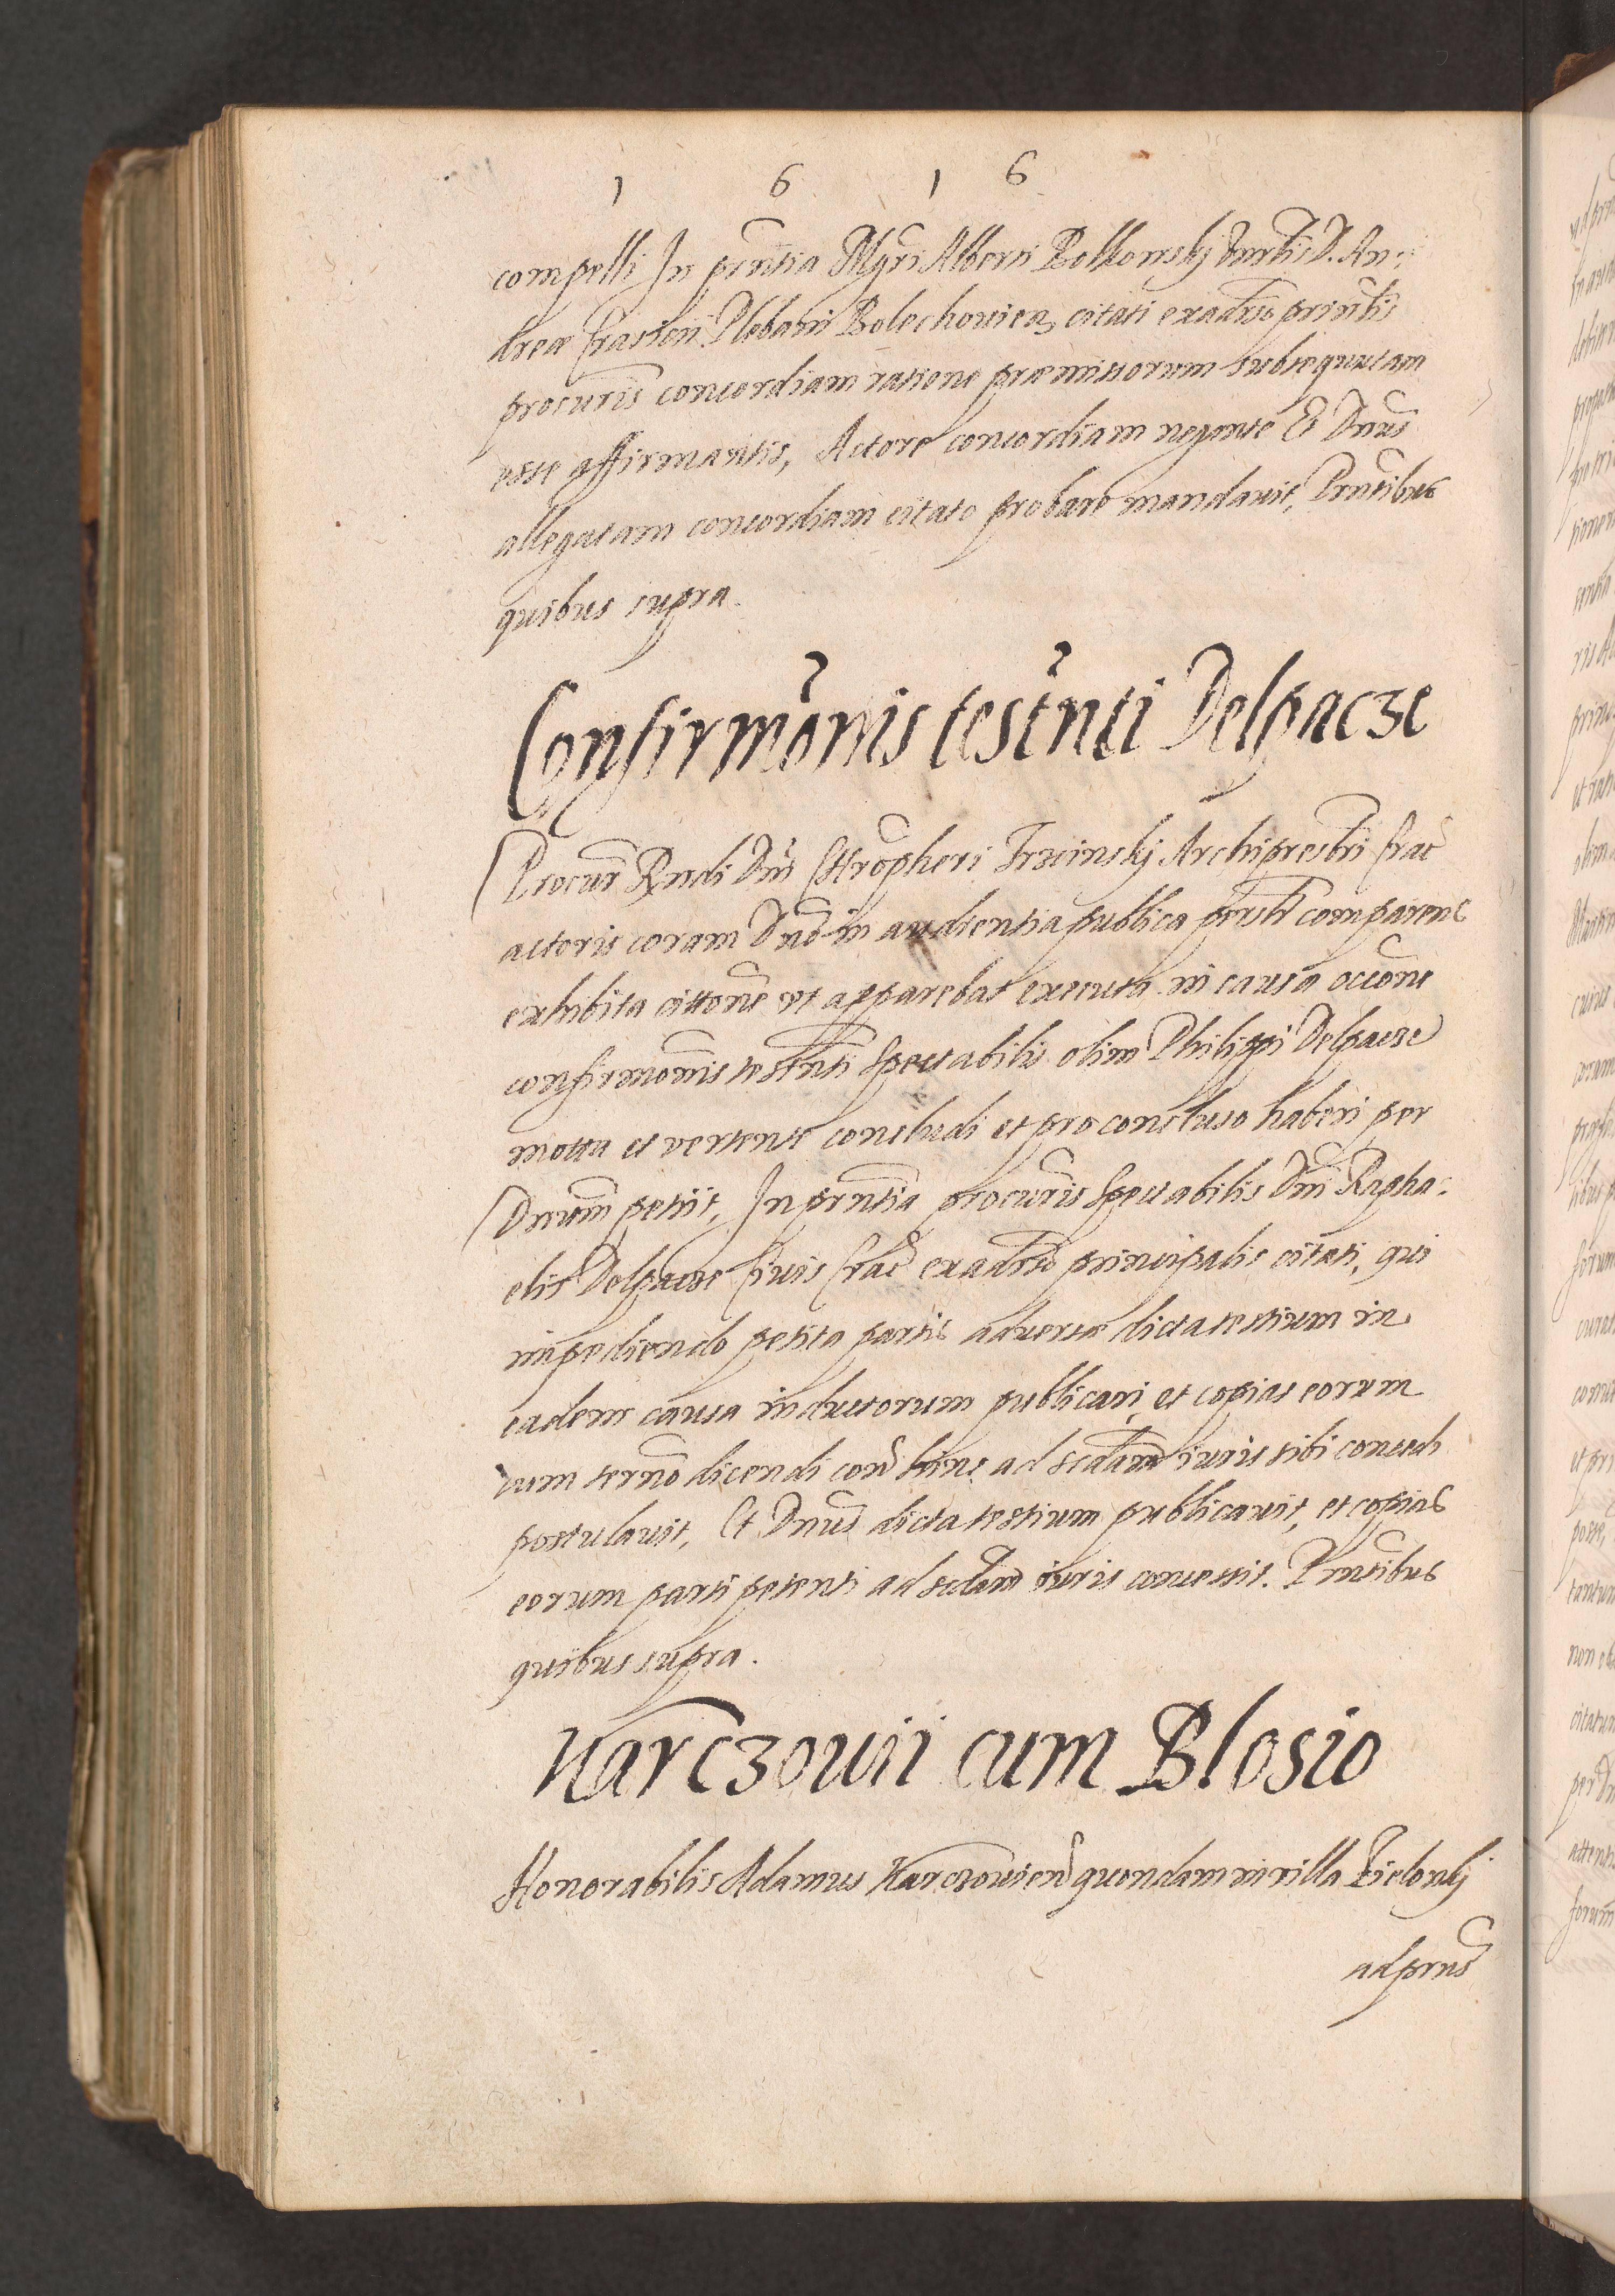 1 6 1 6
compelli In pñtia Mgri Alberti Bolkowskj D. An-
dreæ Plebani Bolechouien citati exadũso prinĉlis
procuris concordiam ratione præmissorum subsequutam
esse affirmantis, Actore concordiam negante Et Dnus
allegatam concordiam citato probare mandauit, Prntibus
quibus supra.
Confirmõnis testñti Delpacze
Procur Rndi Dni Chrõpheri Trzcinskj Archipresbri Crac
actoris coram Dno in audientia publica psrltr comparens
exhibita cittone vt apparebat executa in causa occõne
confirmõnis testñti Spectabilis olim Philippi Delpacze
mota et vertente concludi et pro concluso haberi per
Dnum petiit, In prntia procuris Spectabilis Dni Rapha-
elis Delpacze Ciuis Crac exadũso principalis citati, qui
impediendo petita partis aduersæ dicta testium in
eadem causa inductorum publicari, et copias eorum
cum termo dicendi conl hinc ad scdam iuris sibi concedi
postulauit, Et Dnus dicta testium publicauit, et copias
eorum parti petenti ad scdam iuris concessit. Prntibus
quibus supra.
Karczowii cum Blosio
Honorabilis Adamus Karczowien quondam in villa Zielonkj
ad prns